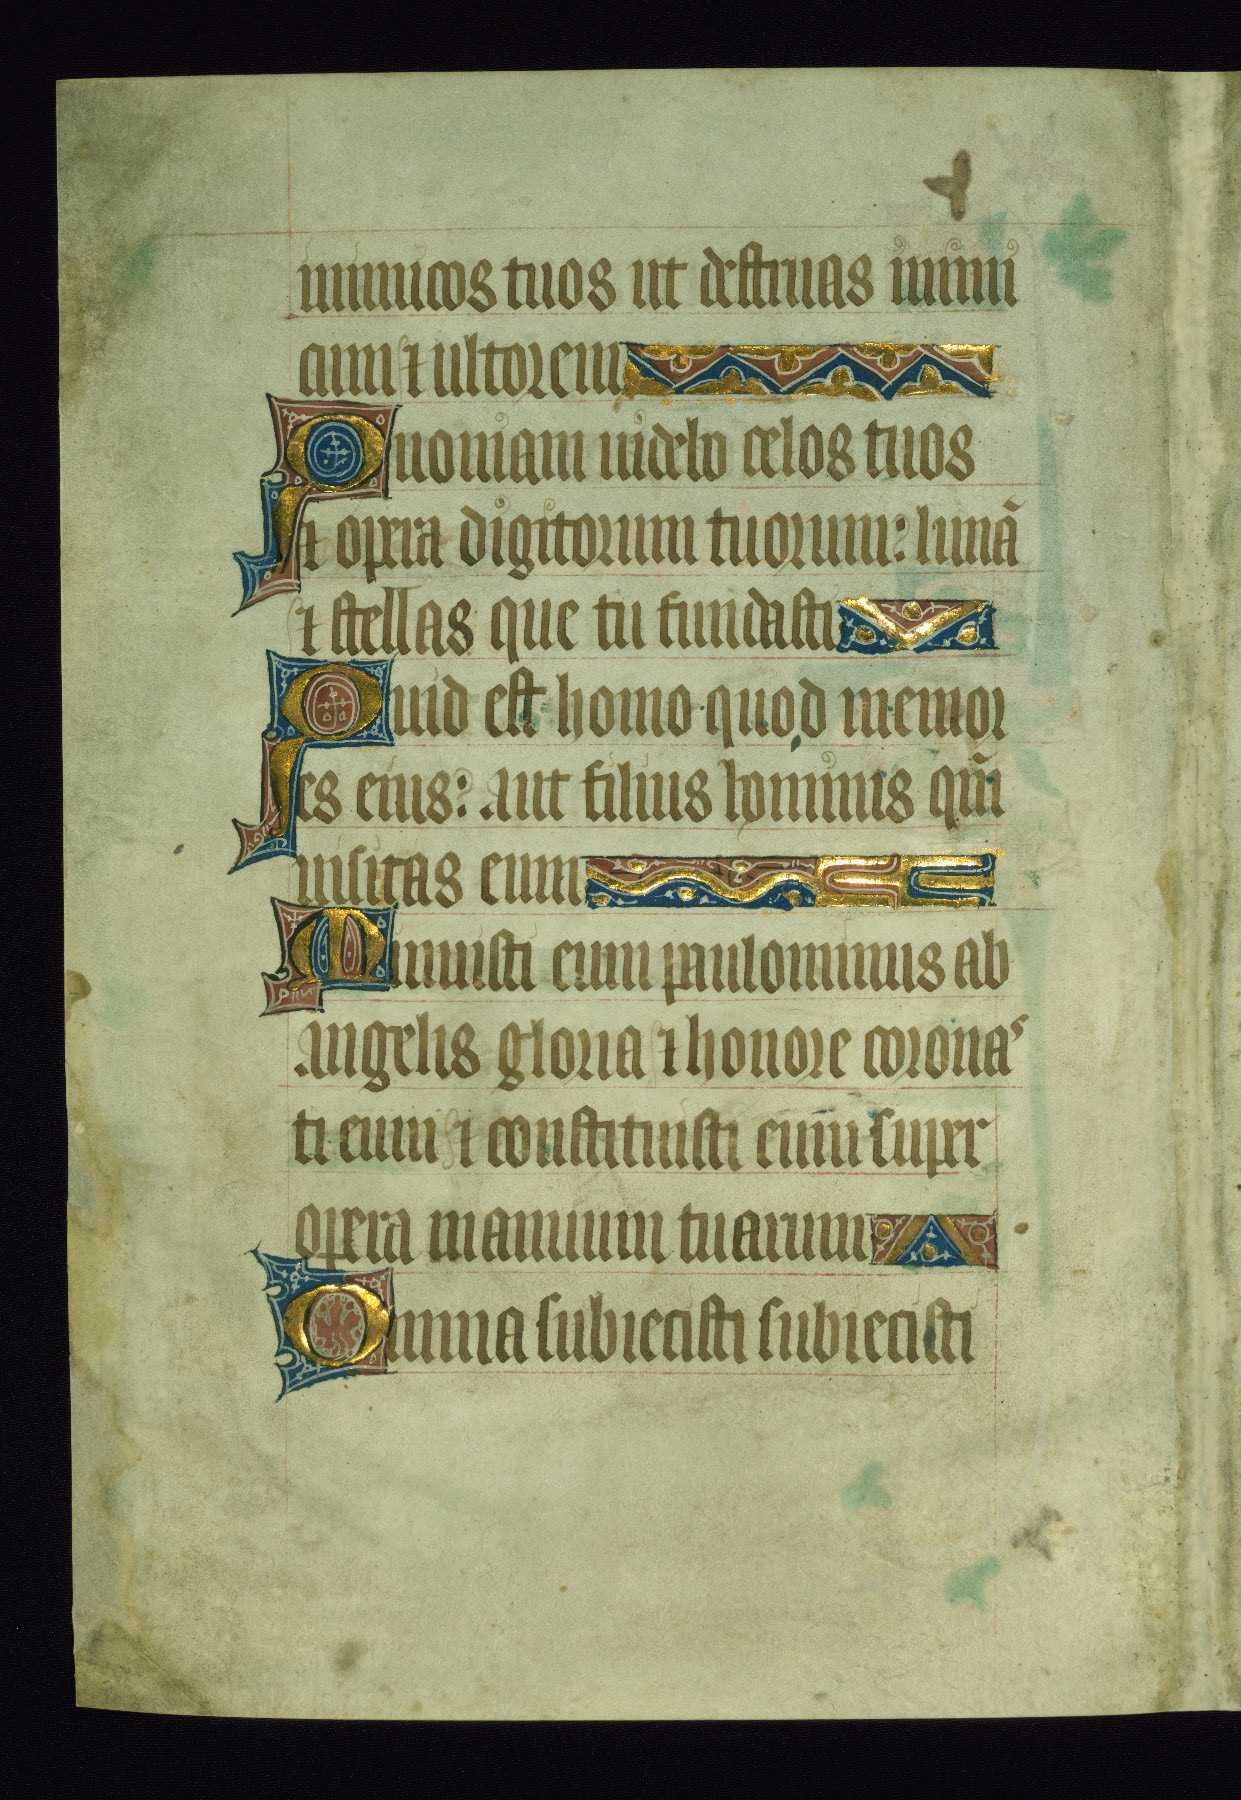 inimicos tuos ut destruas inimi
cum ⁊ ultorem
Quoniam uidebo celos tuos
⁊ opera digitorum tuorum: lunā
⁊ stellas que tu fundasti
Quid est homo quod memor
es eius: aut filius hominis qm̄
uisitas eum
Minuisti eum paulominus ab
angelis gloria ⁊ honore coronas
ti eum ⁊ constituisti eum super
opera manuum tuarum
Omnia subiecisti subiecisti